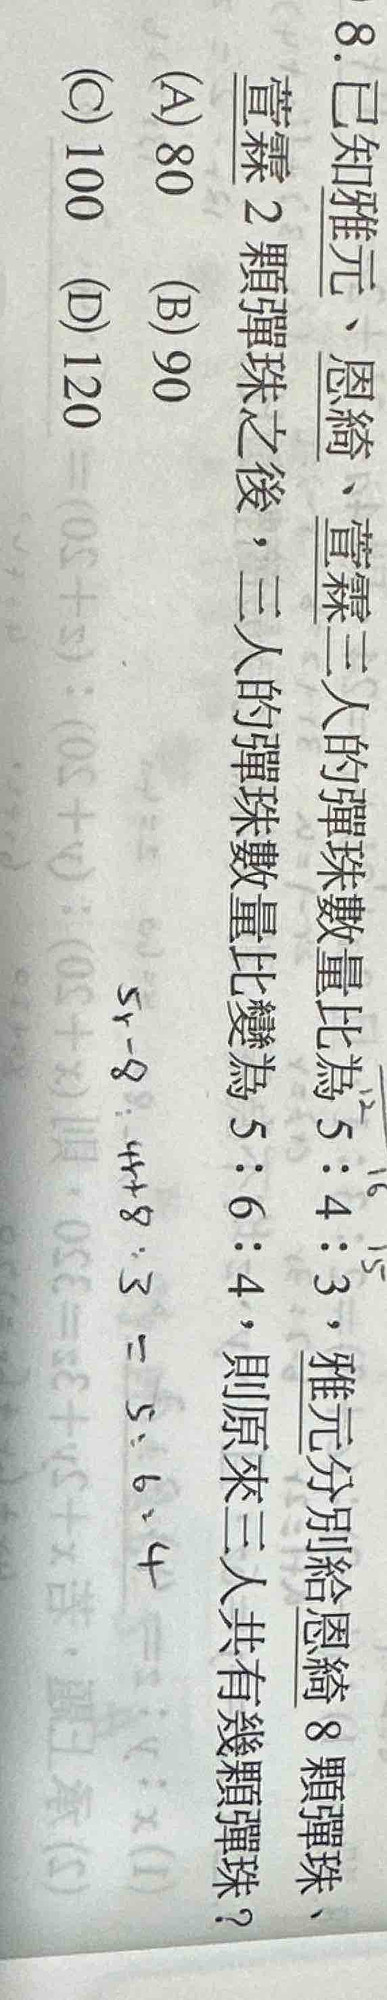 8. 已知雅元、恩綺、萱霖三人的彈珠數量比為 5：4：3，雅元分別給恩綺 8 顆彈珠、
萱霖 2 顆彈珠之後，三人的彈珠數量比變為 5：6：4，則原來三人共有幾顆彈珠？
(A) 80 (B) 90
(C) 100 (D) 120
12 16 15
5r-8 : 4r+8 : 3 = 5 : 6 : 4